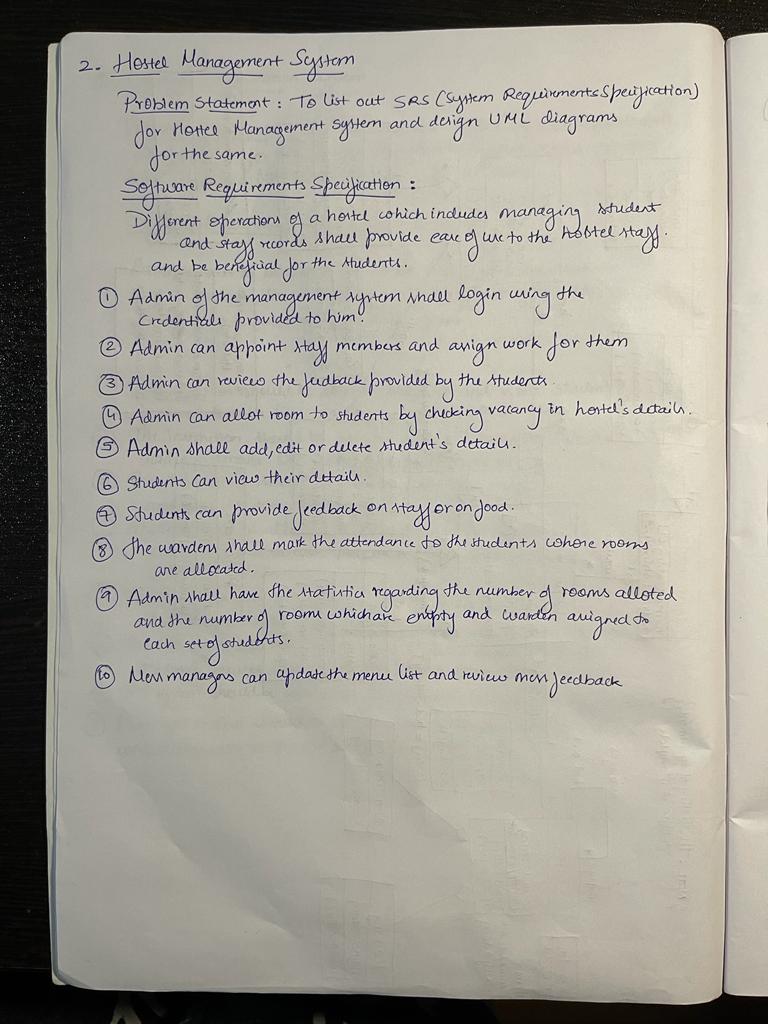 2. Hostel Management System
Problem Statement : To list out SRS (System Requirements Specification)
for Hostel Management system and design UML diagrams
for the same.
Software Requirements Specification :
Different operations of a hostel which includes managing student
and staff records shall provide ease of use to the hostel staff.
and be beneficial for the students.
① Admin of the management system shall login using the
Credentials provided to him.
② Admin can appoint staff members and assign work for them
③ Admin can review the feedback provided by the students.
④ Admin can allot room to students by checking vacancy in hostel's details.
⑤ Admin shall add, edit or delete student's details.
⑥ Students can view their details.
⑦ Students can provide feedback on staff or on food.
⑧ The wardens shall mark the attendance to the students whose rooms
are allocated.
⑨ Admin shall have the statistics regarding the number of rooms alloted
and the number of rooms which are empty and warden assigned to
each set of students.
⑩ Mess managers can update the menu list and review mess feedback